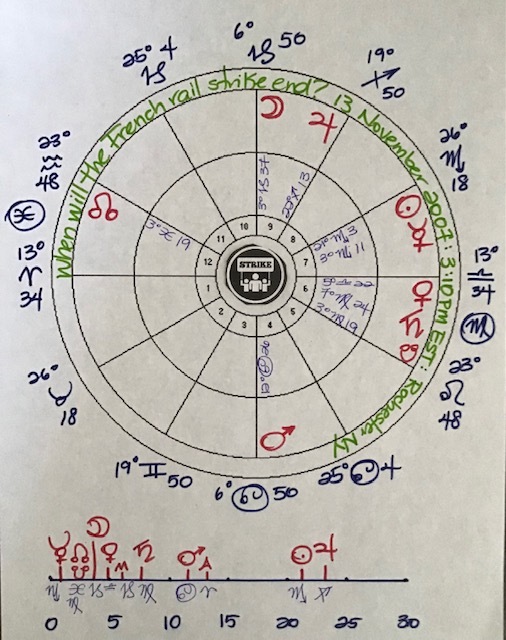 When will the French rail strike end? 13 November 2007: 3:40 PM EST: Rochester NY
6° ♑ 50
19° ♐ 50
26° ♏ 18
13° ♎ 34
♍
23° ♌ 48
25° ♋ 4
6° ♋ 50
19° ♊ 50
26° ♉ 18
13° ♈ 34
♓
23° ♒ 48
25° ♑ 4
☽ ♃
☉ ☿
♀ ♄ ☋
♂
☊
3° ♑ 34
22° ♐ 13
21° ♏ 13
3° ♏ 11
5° ♎ 22
7° ♍ 24
3° ♍ 19
3° ♓ 19
10 9
11 8
12 7
1 6
2 5
3 4
STRIKE
☿ ☊ ☋ ☽ ♀ ♄ ♂ ☉ ♃
♏ ♓ ♍ ♑ ♎ ♑ ♍ ♋ ♈ ♏ ♐
0 5 10 15 20 25 30